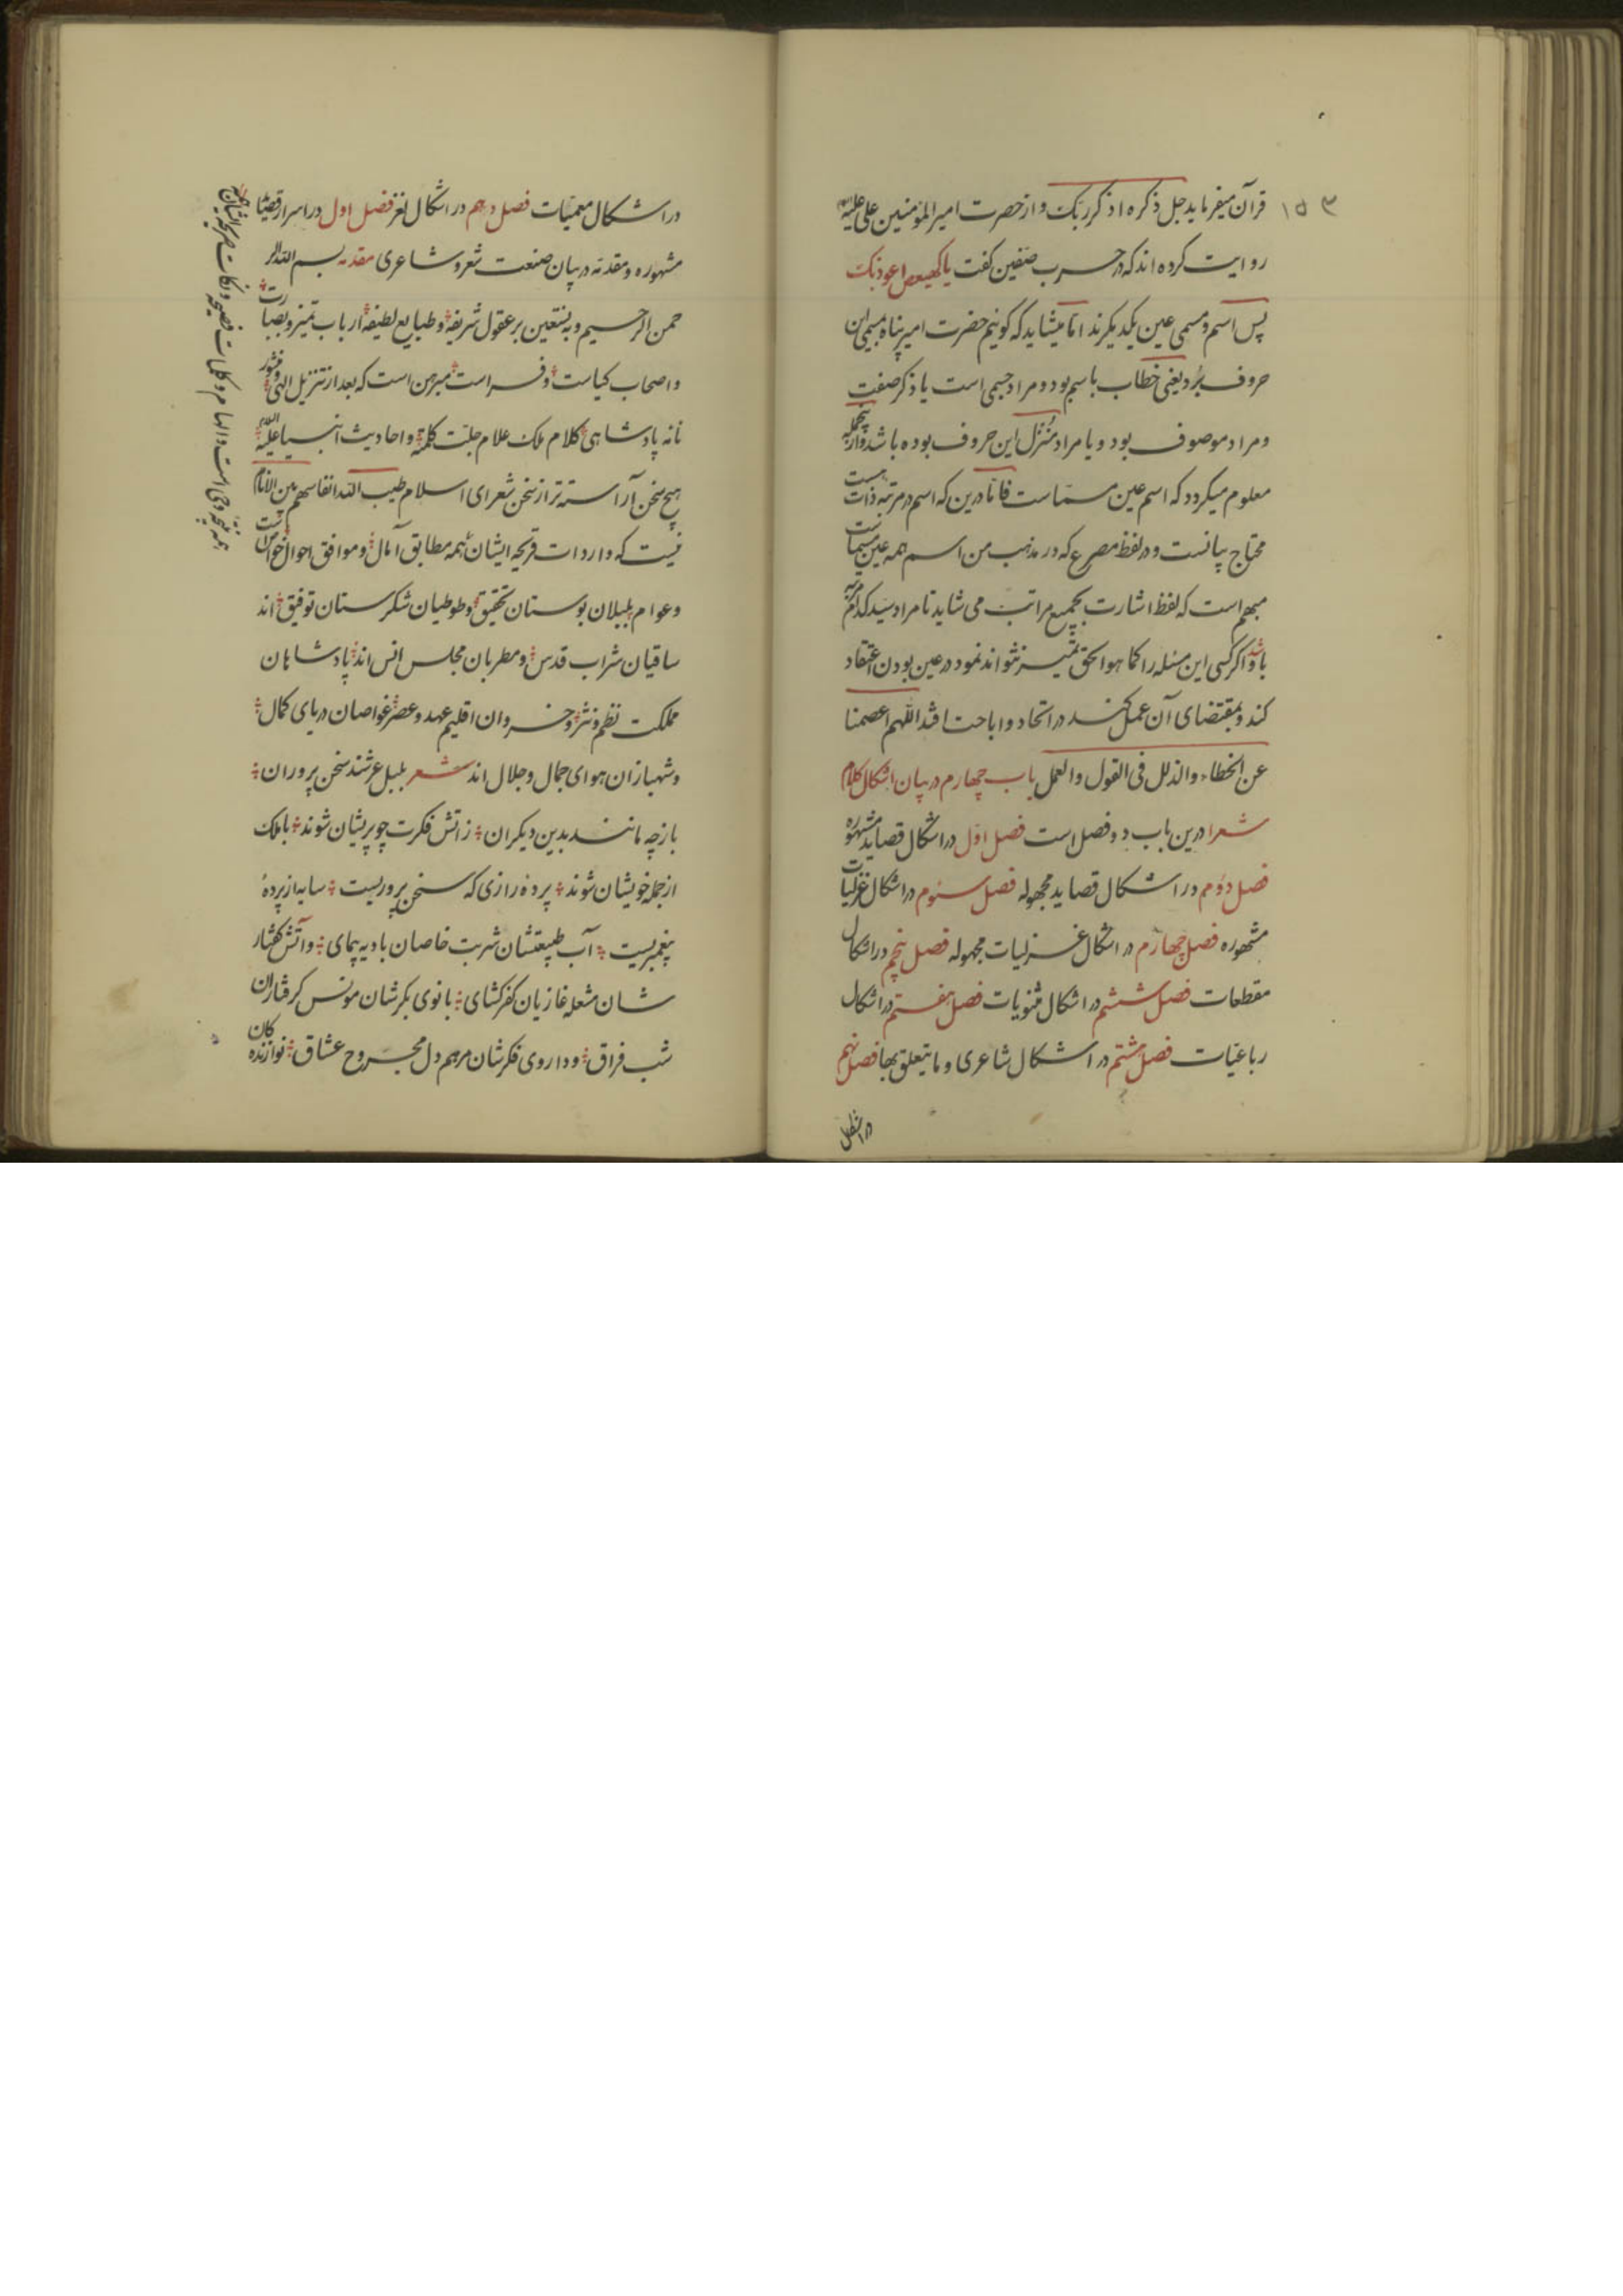 ۱۵۳
قرآن میفرماید جل ذکره اذکر ربک و از حضرت امیر المؤمنین علی علیه السلام
روایت کرده اند که در حرب صفین گفت یا کهیعص اعوذبک
پس اسم و مسمی عین یکدیگرند اما میشاید که گوئیم حضرت امیر پناه بمسمی این
حروف برد یعنی خطاب باسم بود و مراد جسمی است یا ذکر صفت
و مراد موصوف بود و یا مراد منزل این حروف بوده باشد و از ینجمله
معلوم میگردد که اسم عین مسماست فاما درین که اسم در مرتبه ذاتست
محتاج بیانست و در لفظ مصرع که در مذهب من اسم همه عین مسماست
مبهم است که لفظ اشارت بجمیع مراتب می شاید تا مراد سید کدام مرتبه
باشد و اگر کسی این مسئله را کما هو الحق تمیز نتواند نمود در عین بودن اعتقاد
کند و بمقتضای آن عمل کند در اتحاد و اباحت افتد اللهم اعصمنا
عن الخطاء والذلل فی القول والعمل باب چهارم در بیان اشکال کلام
شعرا درین باب ده فصل است فصل اول در اشکال قصاید مشهوره
فصل دوم در اشکال قصاید مجهوله فصل سوم در اشکال غزلیات
مشهوره فصل چهارم در اشکال غزلیات مجهوله فصل پنجم در اشکال
مقطعات فصل ششم در اشکال مثنویات فصل هفتم در اشکال
رباعیات فصل هشتم در اشکال شاعری و ما یتعلق بها فصل نهم
در اشکال
در اشکال معمیات فصل دهم در اشکال لغز فصل اول در اسرار قصاید
مشهوره و مقدمه در بیان صنعت شعر و شاعری مقدمه بسم الله الر
حمن الرحیم و به نستعین بر عقول شریفه و طبایع لطیفه ارباب تمیز و بصارت
و اصحاب کیاست و فراست مبرهن است که بعد از تنزیل الهی و منشور
نانه پادشاهی کلام ملک علام جلت کلمته و احادیث انبیا علیه السلام
هیچ سخن آراسته تر از سخن شعرای اسلام طیب الله انفاسهم بین الانام
نیست که واردات قریحه ایشان همه مطابق آمال و موافق احوال خواص است
و عوام بلبلان بوستان تحقیق و طوطیان شکرستان توفیق اند
ساقیان شراب قدس و مطربان مجلس انس اند پادشاهان
مملکت نظم و نثر و خسروان اقلیم عهد و عصر غواصان دریای کمال
و شهبازان هوای جمال و جلال اند شعر بلبل عرشند سخن پروران
باز چه مانند بدین دیگران ز آتش فکرت چو پریشان شوند با ملک
از جمله خویشان شوند پرده رازی که سخن پروریست سایه از پردهٔ
پیغمبریست آب طبیعتشان شربت خاصان بادیه پیمای و آتش گفتار
شان مشعله غازیان کفر کشای بانوی بکرشان مونس گرفتاران
شب فراق و داروی فکرشان مرهم دل مجروح عشاق نوازنده کان